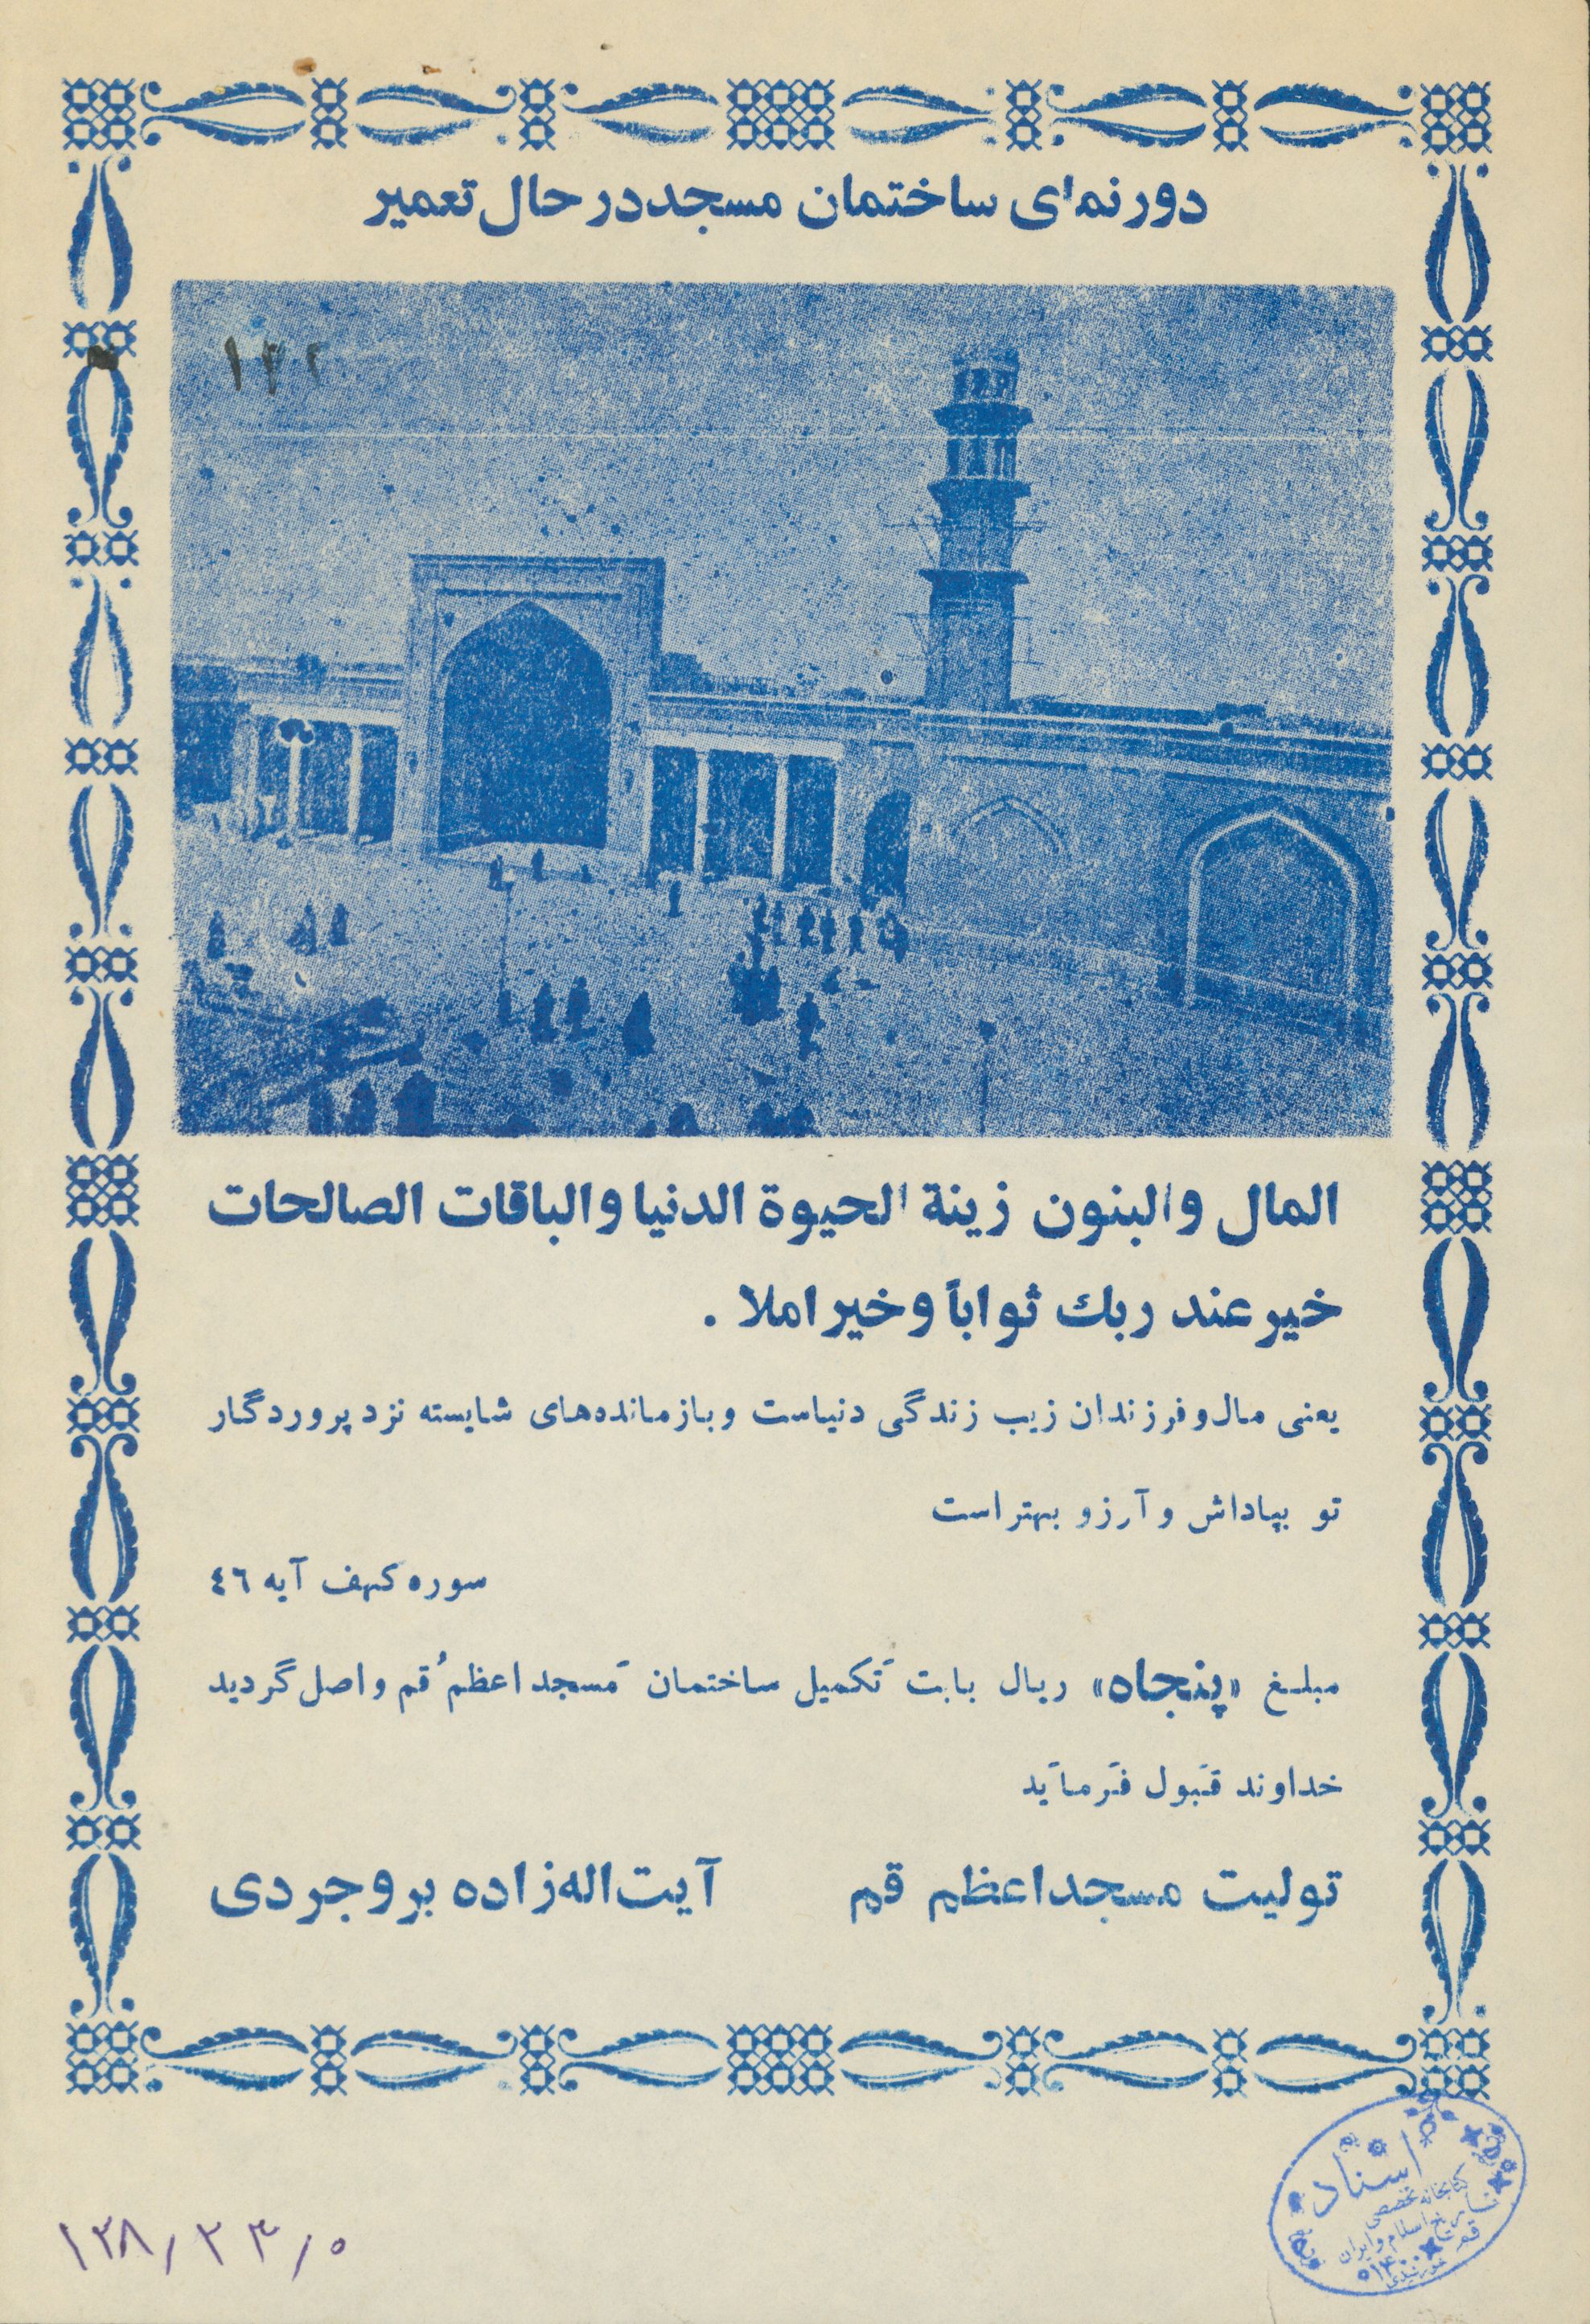 دورنمای ساختمان مسجد در حال تعمیر
۱۴۲
المال والبنون زینة الحیوة الدنیا والباقات الصالحات
خیر عند ربك ثواباً وخیر املا .
یعنی مال و فرزندان زیب زندگی دنیاست و بازمانده‌های شایسته نزد پروردگار
تو بپاداش و آرزو بهتر است
سوره کهف آیه ٤٦
مبلغ «پنجاه» ریال بابت تکمیل ساختمان مسجد اعظم قم واصل گردید
خداوند قبول فرماید
تولیت مسجد اعظم قم آیت‌اله‌زاده بروجردی
اسناد
کتابخانه تخصصی
تاریخ اسلام و ایران
قم
۱۲۸/۲۳/۰